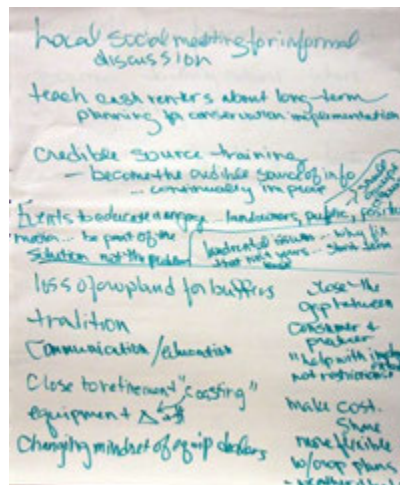 Local social meeting for informal
discussion
teach cash renters about long-term
planning for conservation implementation
Credible source training
- become the credible source of info
... continually improve
Events to educate & engage ... landowners, public, positive
... be part of the
solution not the problem
land rental issues ... why fix
that not yours ... short term
loss of cropland for buffers
tradition
Communication/education
Close to retirement "coasting"
equipment Δ → $
Changing mindset of equip dealers
close the
gap between
consumer &
producer
"help with
not restrictions"
make cost
share
more flexible
w/crop plans